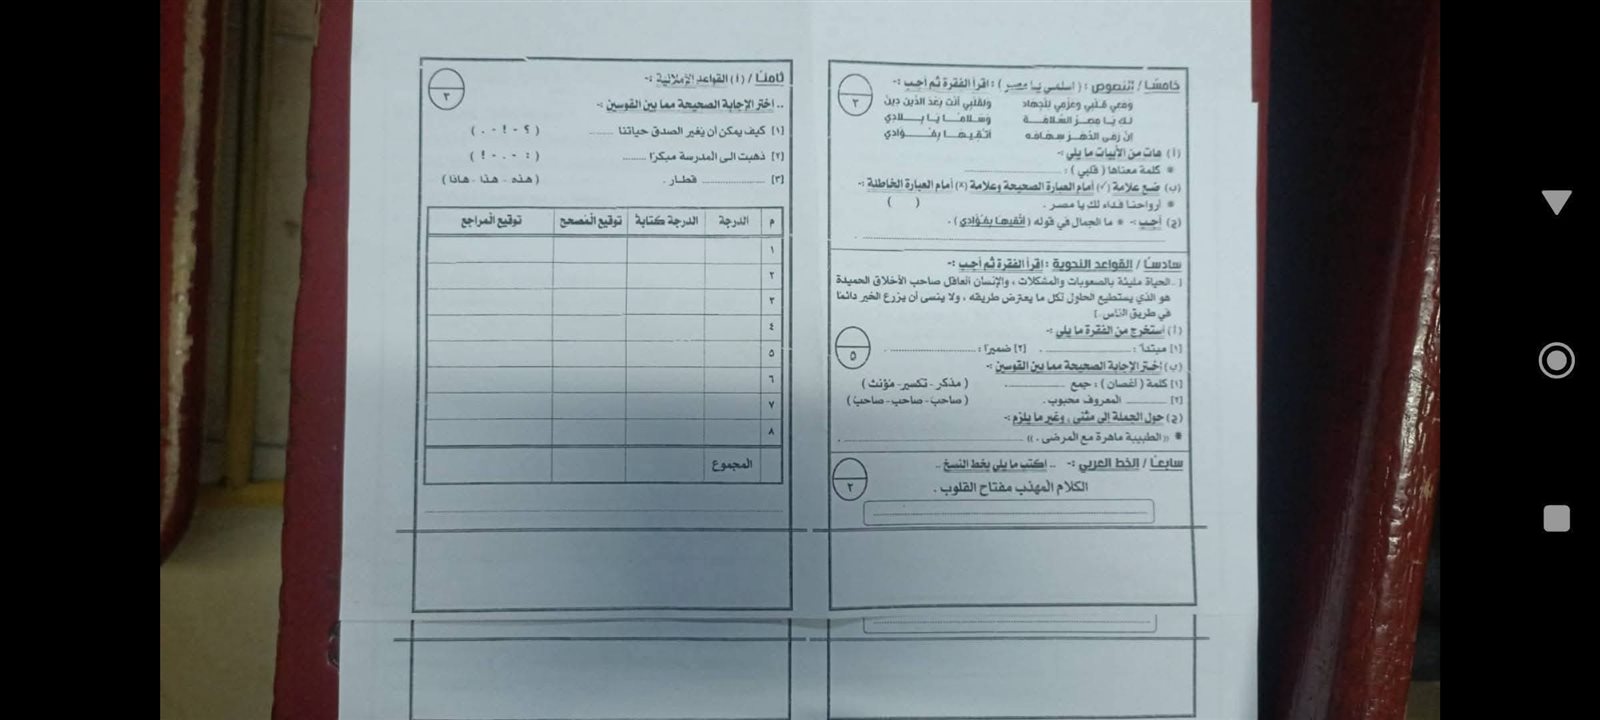 خامسًا / النصوص : ( اسلمي يا مصر ) : اقرأ الفقرة ثم أجب :-
٣
ومعي قلبي وعزمي للجهاد ولقلبي أنت بعد الدين دين
لك يا مصر السلامة وسلاما يا بلادي
إن رمى الدهر سهامه أتقيها بفؤادي
(أ) هات من الأبيات ما يلي :-
* كلمة معناها ( قلبي ) : ....................
(ب) ضع علامة (✓) أمام العبارة الصحيحة وعلامة (×) أمام العبارة الخاطئة :-
* أرواحنا فداء لك يا مصر . ( )
(ج) أجب :- * ما الجمال في قوله ( أتقيها بفؤادي ) .
....................
سادسًا / القواعد النحوية : اقرأ الفقرة ثم أجب :-
[..الحياة مليئة بالصعوبات والمشكلات ، والإنسان العاقل صاحب الأخلاق الحميدة
هو الذي يستطيع الحلول لكل ما يعترض طريقه ، ولا ينسى أن يزرع الخير دائمًا
في طريق الناس..]
(أ) أستخرج من الفقرة ما يلي :-
٥
[١] مبتدأ : .................... . [٢] ضميرًا : ....................
(ب) اختر الإجابة الصحيحة مما بين القوسين :-
[١] كلمة ( أغصان ) : جمع .............. ( مذكر - تكسير - مؤنث )
[٢] ........... المعروف محبوب . ( صاحب - صاحب - صاحب )
(ج) حول الجملة إلى مثنى ، وغير ما يلزم :-
* ((الطبيبة ماهرة مع المرضى . )) ....................
سابعًا / الخط العربي :- .. اكتب ما يلي بخط النسخ ..
٢
الكلام المهذب مفتاح القلوب .
ثامنًا / (أ) القواعد الإملائية :-
٣
.. اختر الإجابة الصحيحة مما بين القوسين :-
[١] كيف يمكن أن يغير الصدق حياتنا ........ ( ؟ - ! - . )
[٢] ذهبت الى المدرسة مبكرًا ........ ( : - . - ! )
[٣] .................... قطار . ( هذه - هذا - هاذا )
م الدرجة الدرجة كتابة توقيع المصحح توقيع المراجع
١
٢
٣
٤
٥
٦
٧
٨
المجموع